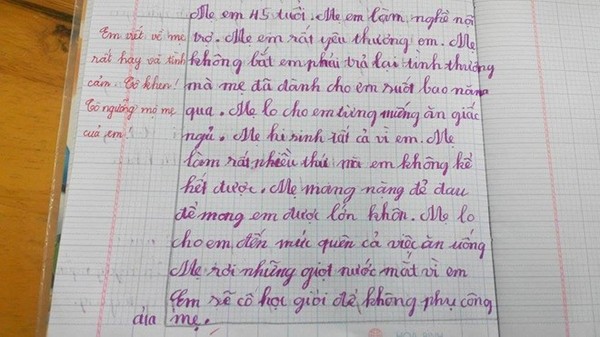 Mẹ em 45 tuổi. Mẹ em làm nghề nội
trợ. Mẹ em rất yêu thương em. Mẹ
không bắt em phải trả lại tình thương
mà mẹ đã dành cho em suốt bao năm
qua. Mẹ lo cho em từng miếng ăn giấc
ngủ. Mẹ hi sinh tất cả vì em. Mẹ
làm rất nhiều thứ mà em không kể
hết được. Mẹ mang nặng đẻ đau
để mong em được lớn khôn. Mẹ lo
cho em đến mức quên cả việc ăn uống
Mẹ rơi những giọt nước mắt vì em
Em sẽ cố học giỏi để không phụ công
của mẹ.
Em viết về mẹ
rất hay và tình
cảm. Cô khen!
Cô ngưỡng mộ mẹ
của em!